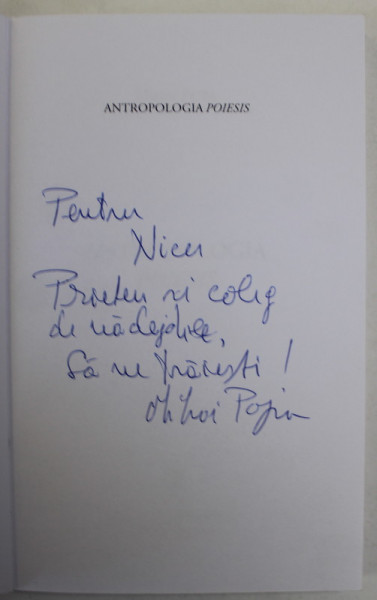 ANTROPOLOGIA POIESIS
Pentru
Nicu
Prieten și coleg
de nădejdile,
Să ne trăiești!
Mihai Popa